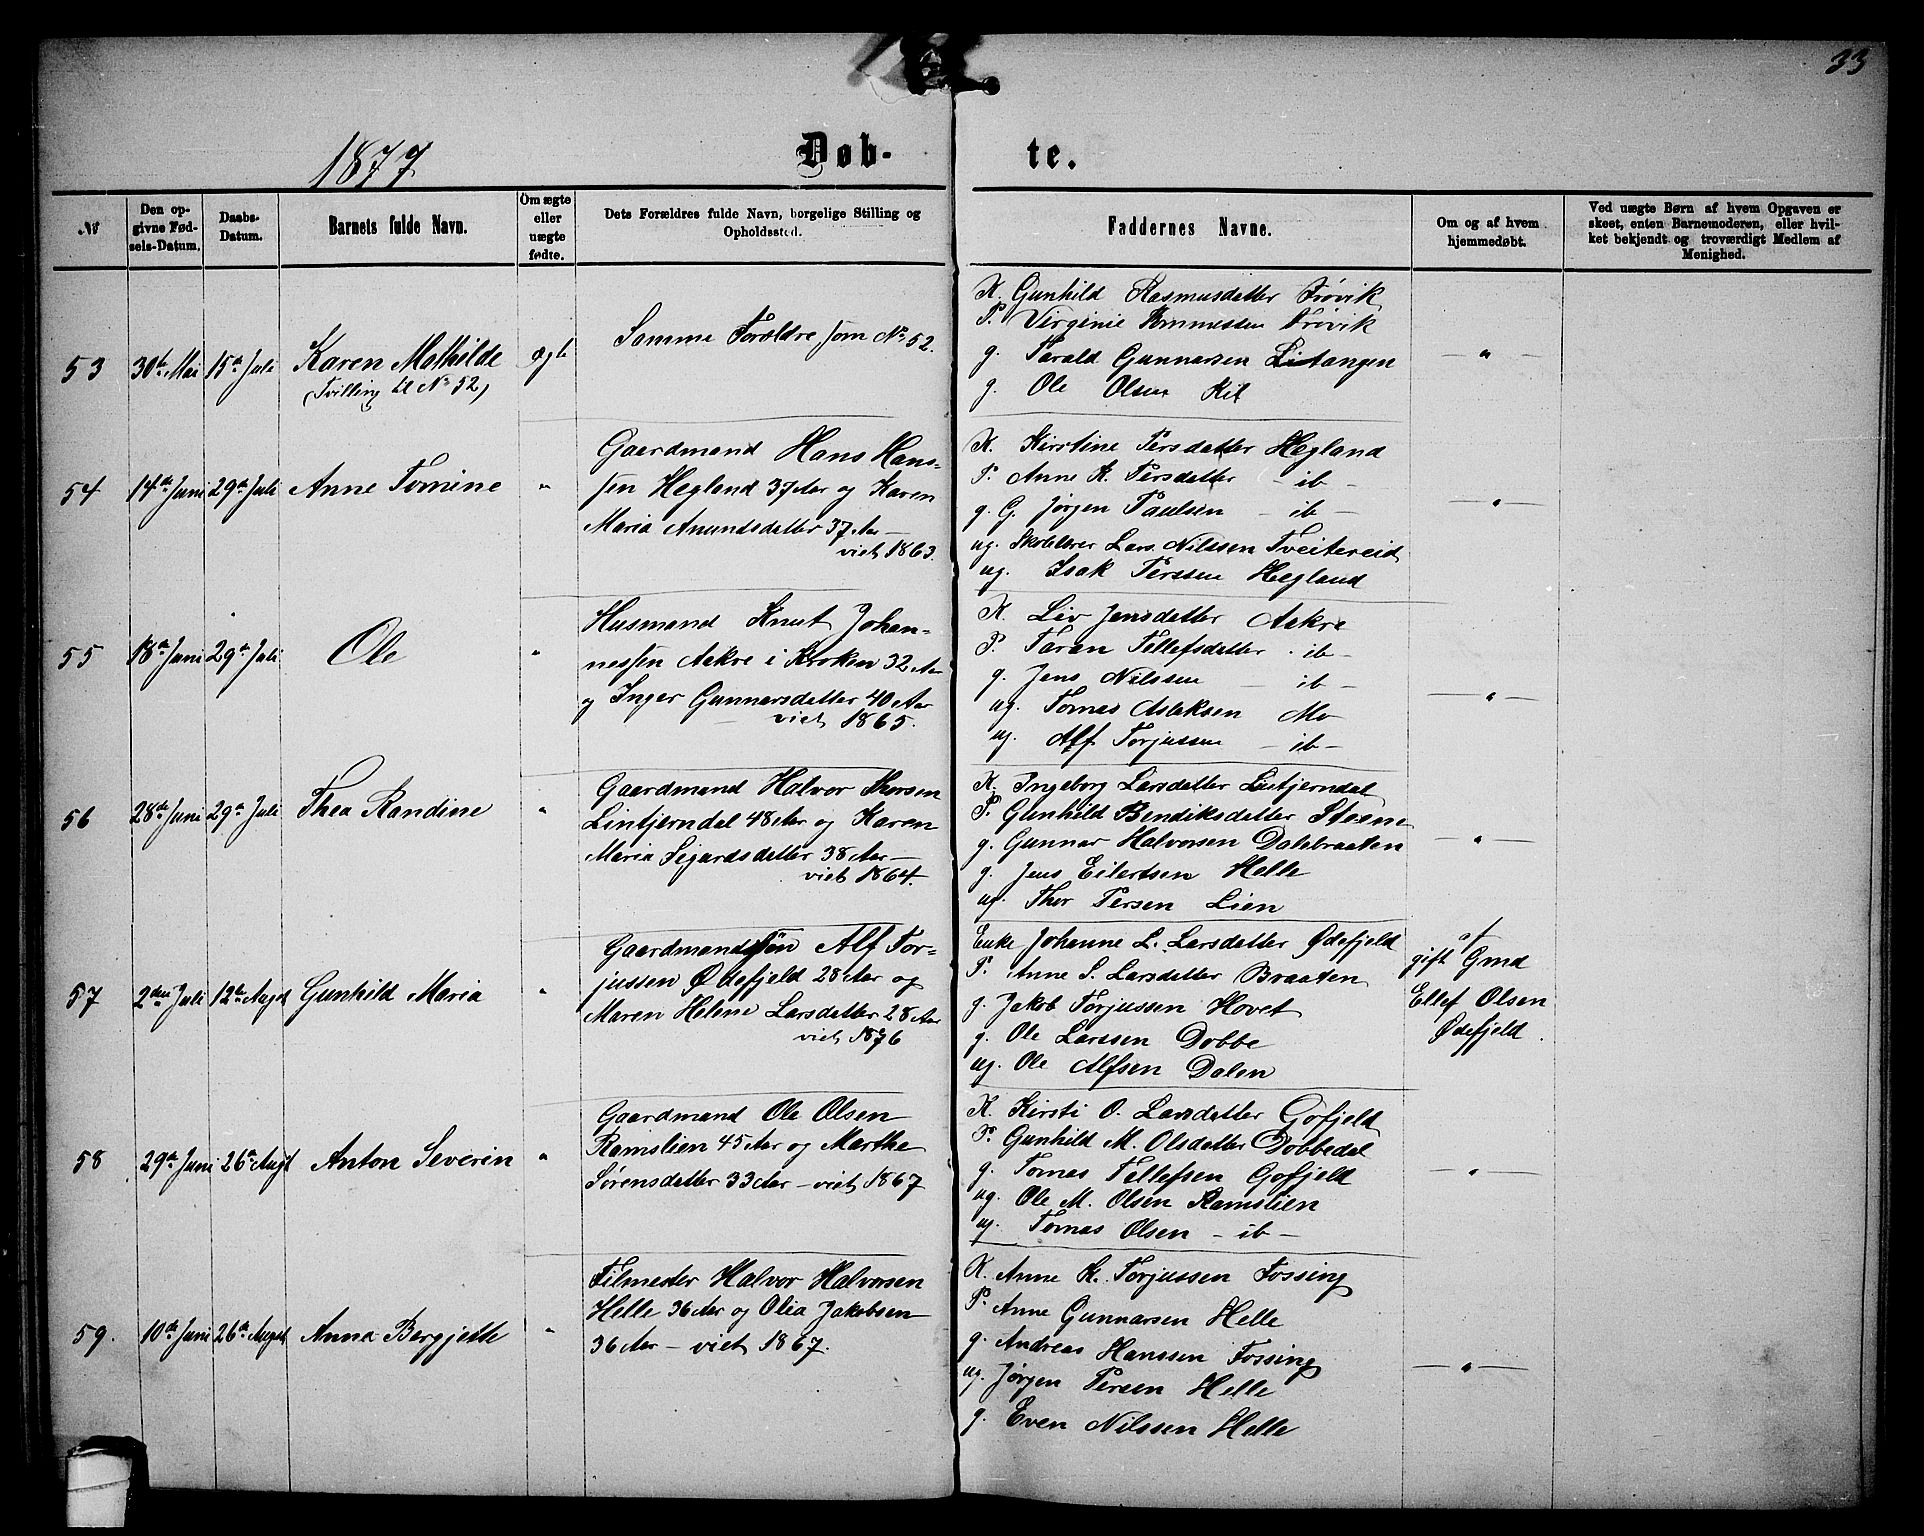 33
1877
Døb-
te.
№
Den opgivne Fødsels-Datum.
Daabs-Datum.
Barnets fulde Navn.
Om ægte eller uægte fødte.
Dets Forældres fulde Navn, borgelige Stilling og Opholdssted.
Faddernes Navne.
Om og af hvem hjemmedøbt.
Ved uægte Børn af hvem Opgaven er skeet, enten Barnemoderen, eller hvilket bekjendt og troværdigt Medlem af Menighed.
53 30te Mai 15de Juli Karen Mathilde ægte
(Tvilling til No 52)
Samme Forældre som No 52.
K. Gunhild Rasmusdatter Frøvik
P. Virginie Frøvik
g. Tarald Gunnarsen Listangen
g. Ole Olsen Kil
— " —
54 14de Juni 29de Juli Anne Tomine "
Gaardmand Hans Hans-
sen Hegland 37 Aar og Karen
Maria Anundsdatter 37 Aar —
viet 1863.
K. Kirstine Persdatter Hegland
P. Anne K. Persdatter — ib —
g. G. Jørgen Paulsen — ib —
ug. Skolelærer Lars Nilssen Tveitereid
ug. Isak Perssen Hegland
— " —
55 18de Juni 29de Juli Ole "
Husmand Knut Johan-
nessen Aakre i Kroken 32 Aar
og Inger Gunnarsdatter 40 Aar
viet 1865.
K. Liv Jensdatter Aakre
P. Taran Tellefsdatter - ib -
g. Jens Nilssen — ib —
ug. Tomas Aslaksen Mo
ug. Alf Torjussen — ib —
— " —
56 28de Juni 29de Juli Thea Randine "
Gaardmand Halvor Thorsen
Lintjerndal 48 Aar og Karen
Maria Sigurdsdatter 38 Aar —
viet 1864.
K. Ingeborg Larsdatter Lintjerndal
P. Gunhild Bendiksdatter Steene
g. Gunnar Halvorsen Dalebraaten
g. Jens Eilertsen Helle
ug. Thor Persen Lien
— " —
57 2den Juli 12te Augst Gunhild Maria "
Gaardmandssøn Alf Tor-
jussen Ødefjeld 28 Aar og
Maren Helene Larsdatter 28 Aar
viet 1876
Enke Johanne L. Larsdatter Ødefjeld
P. Anne S. Larsdatter Braaten
g. Jakob Torjussen Hovet
g. Ole Larssen Dobbe
ug. Ole Alfsen Dalen
af
gift Gmd
Ellef Olsen
Ødefjeld.
58 29de Juni 26de Augst Anton Severin "
Gaardmand Ole Olsen
Ramslien 45 Aar og Marthe
Sørensdatter 33 Aar — viet 1867
K. Kirsti O. Larsdatter Gofjeld
P. Gunhild M. Olsdatter Dobbedal
g. Tomas Tellefsen Gofjeld
ug. Ole M. Olsen Ramslien
ug. Tomas Olsen — ib —
— " —
59. 10de Juni 26de Augst Anna Bergjette "
Filmester Halvor Halvorsen
Helle 36 Aar og Olia Jakobsen
36 Aar — viet 1867.
K. Anne K. Torjussen Fossing
P. Anne Gunnarsen Helle
g. Andreas Hanssen Fossing
ug. Jørgen Persen Helle
g. Even Nilssen Helle
— " —